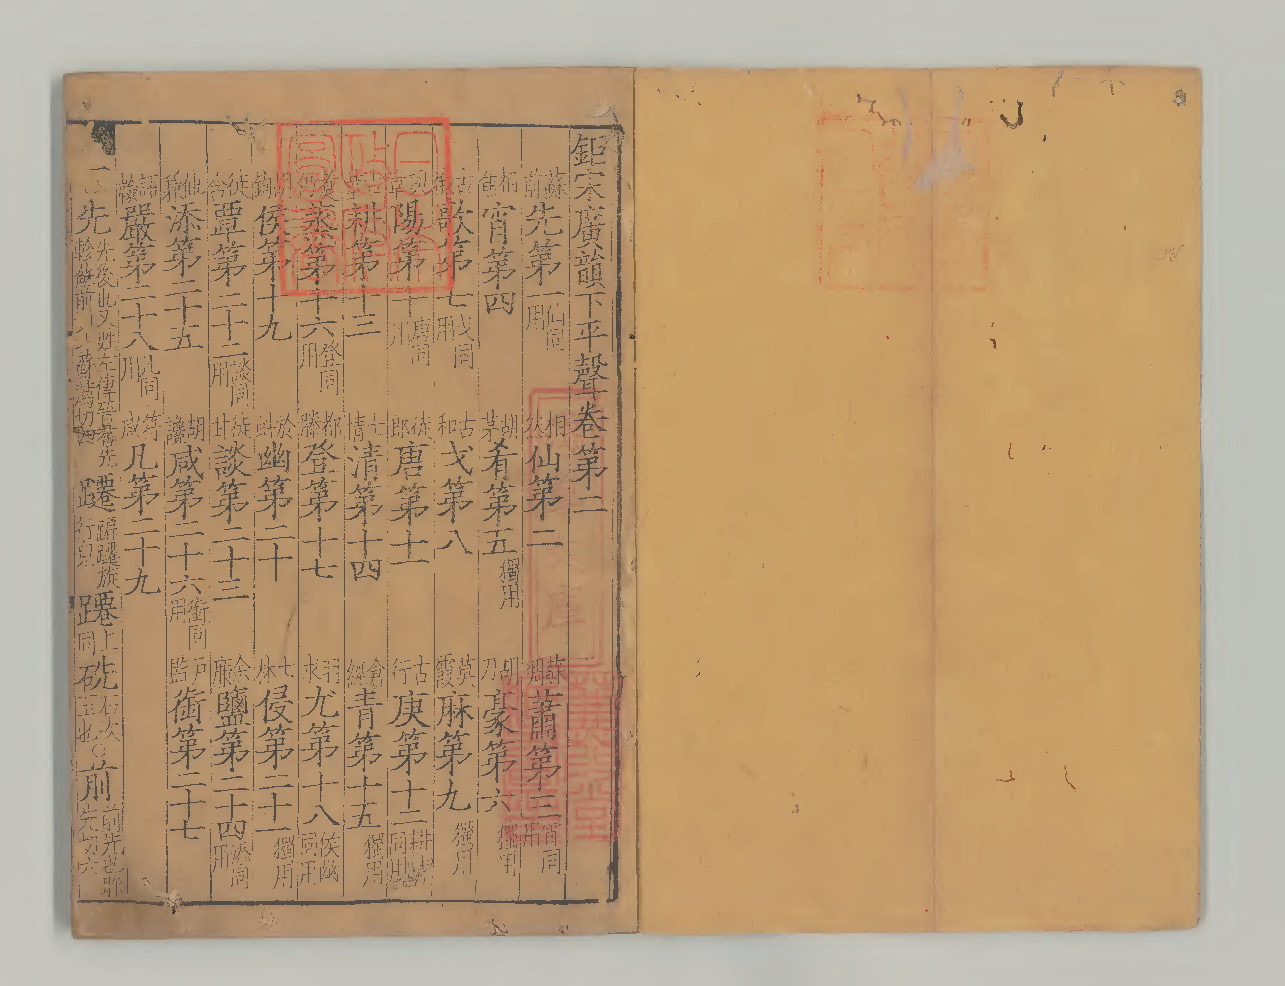 鉅宋廣韻下平聲卷第二
蘇前先第一仙同用 相然仙第二 蕭第三宵同用
宵第四 胡茅肴第五獨用 胡刀豪第六獨用
古俄歌第七戈同用 古和戈第八 莫霞麻第九獨用
陽第十唐同用 徒郎唐第十一 古行庚第十二耕清同用
耕第十三 七情清第十四 倉經青第十五獨用
蒸第十六登同用 都滕登第十七 羽求尤第十八侯幽同用
胡鉤侯第十九 於虯幽第二十 七林侵第二十一獨用
徒含覃第二十二談同用 徒甘談第二十三 余廉鹽第二十四添同用
添第二十五 胡讒咸第二十六銜同用 戶監銜第二十七
嚴第二十八凡同用 符咸凡第二十九
先先後也又姓左傳晉有先軫蘇前切又蘇薦切四 躚蹁躚旋行皃 上同 石次玉也○前前先也昨先切六